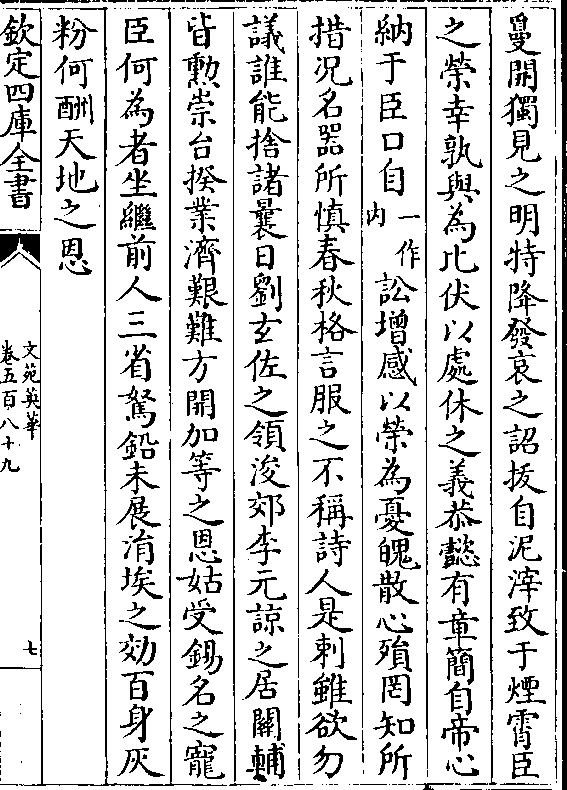 曼開獨見之明特降發哀之詔拔自泥滓致于煙霄臣
之榮幸孰與為比伏以處休之義恭懿有章簡自帝心
納于臣口自一作内訟增感以榮為憂魄散心殞罔知所
措况名器所慎春秋格言服之不稱詩人是刺雖欲勿
議誰能捨諸曩日劉玄佐之領浚郊李元諒之居關輔
皆勲崇台揆業濟艱難方開加等之恩姑受錫名之寵
臣何為者坐繼前人三省駑鉛未展涓埃之効百身灰
粉何酬天地之恩
欽定四庫全書
文苑英華
卷五百八十九
七